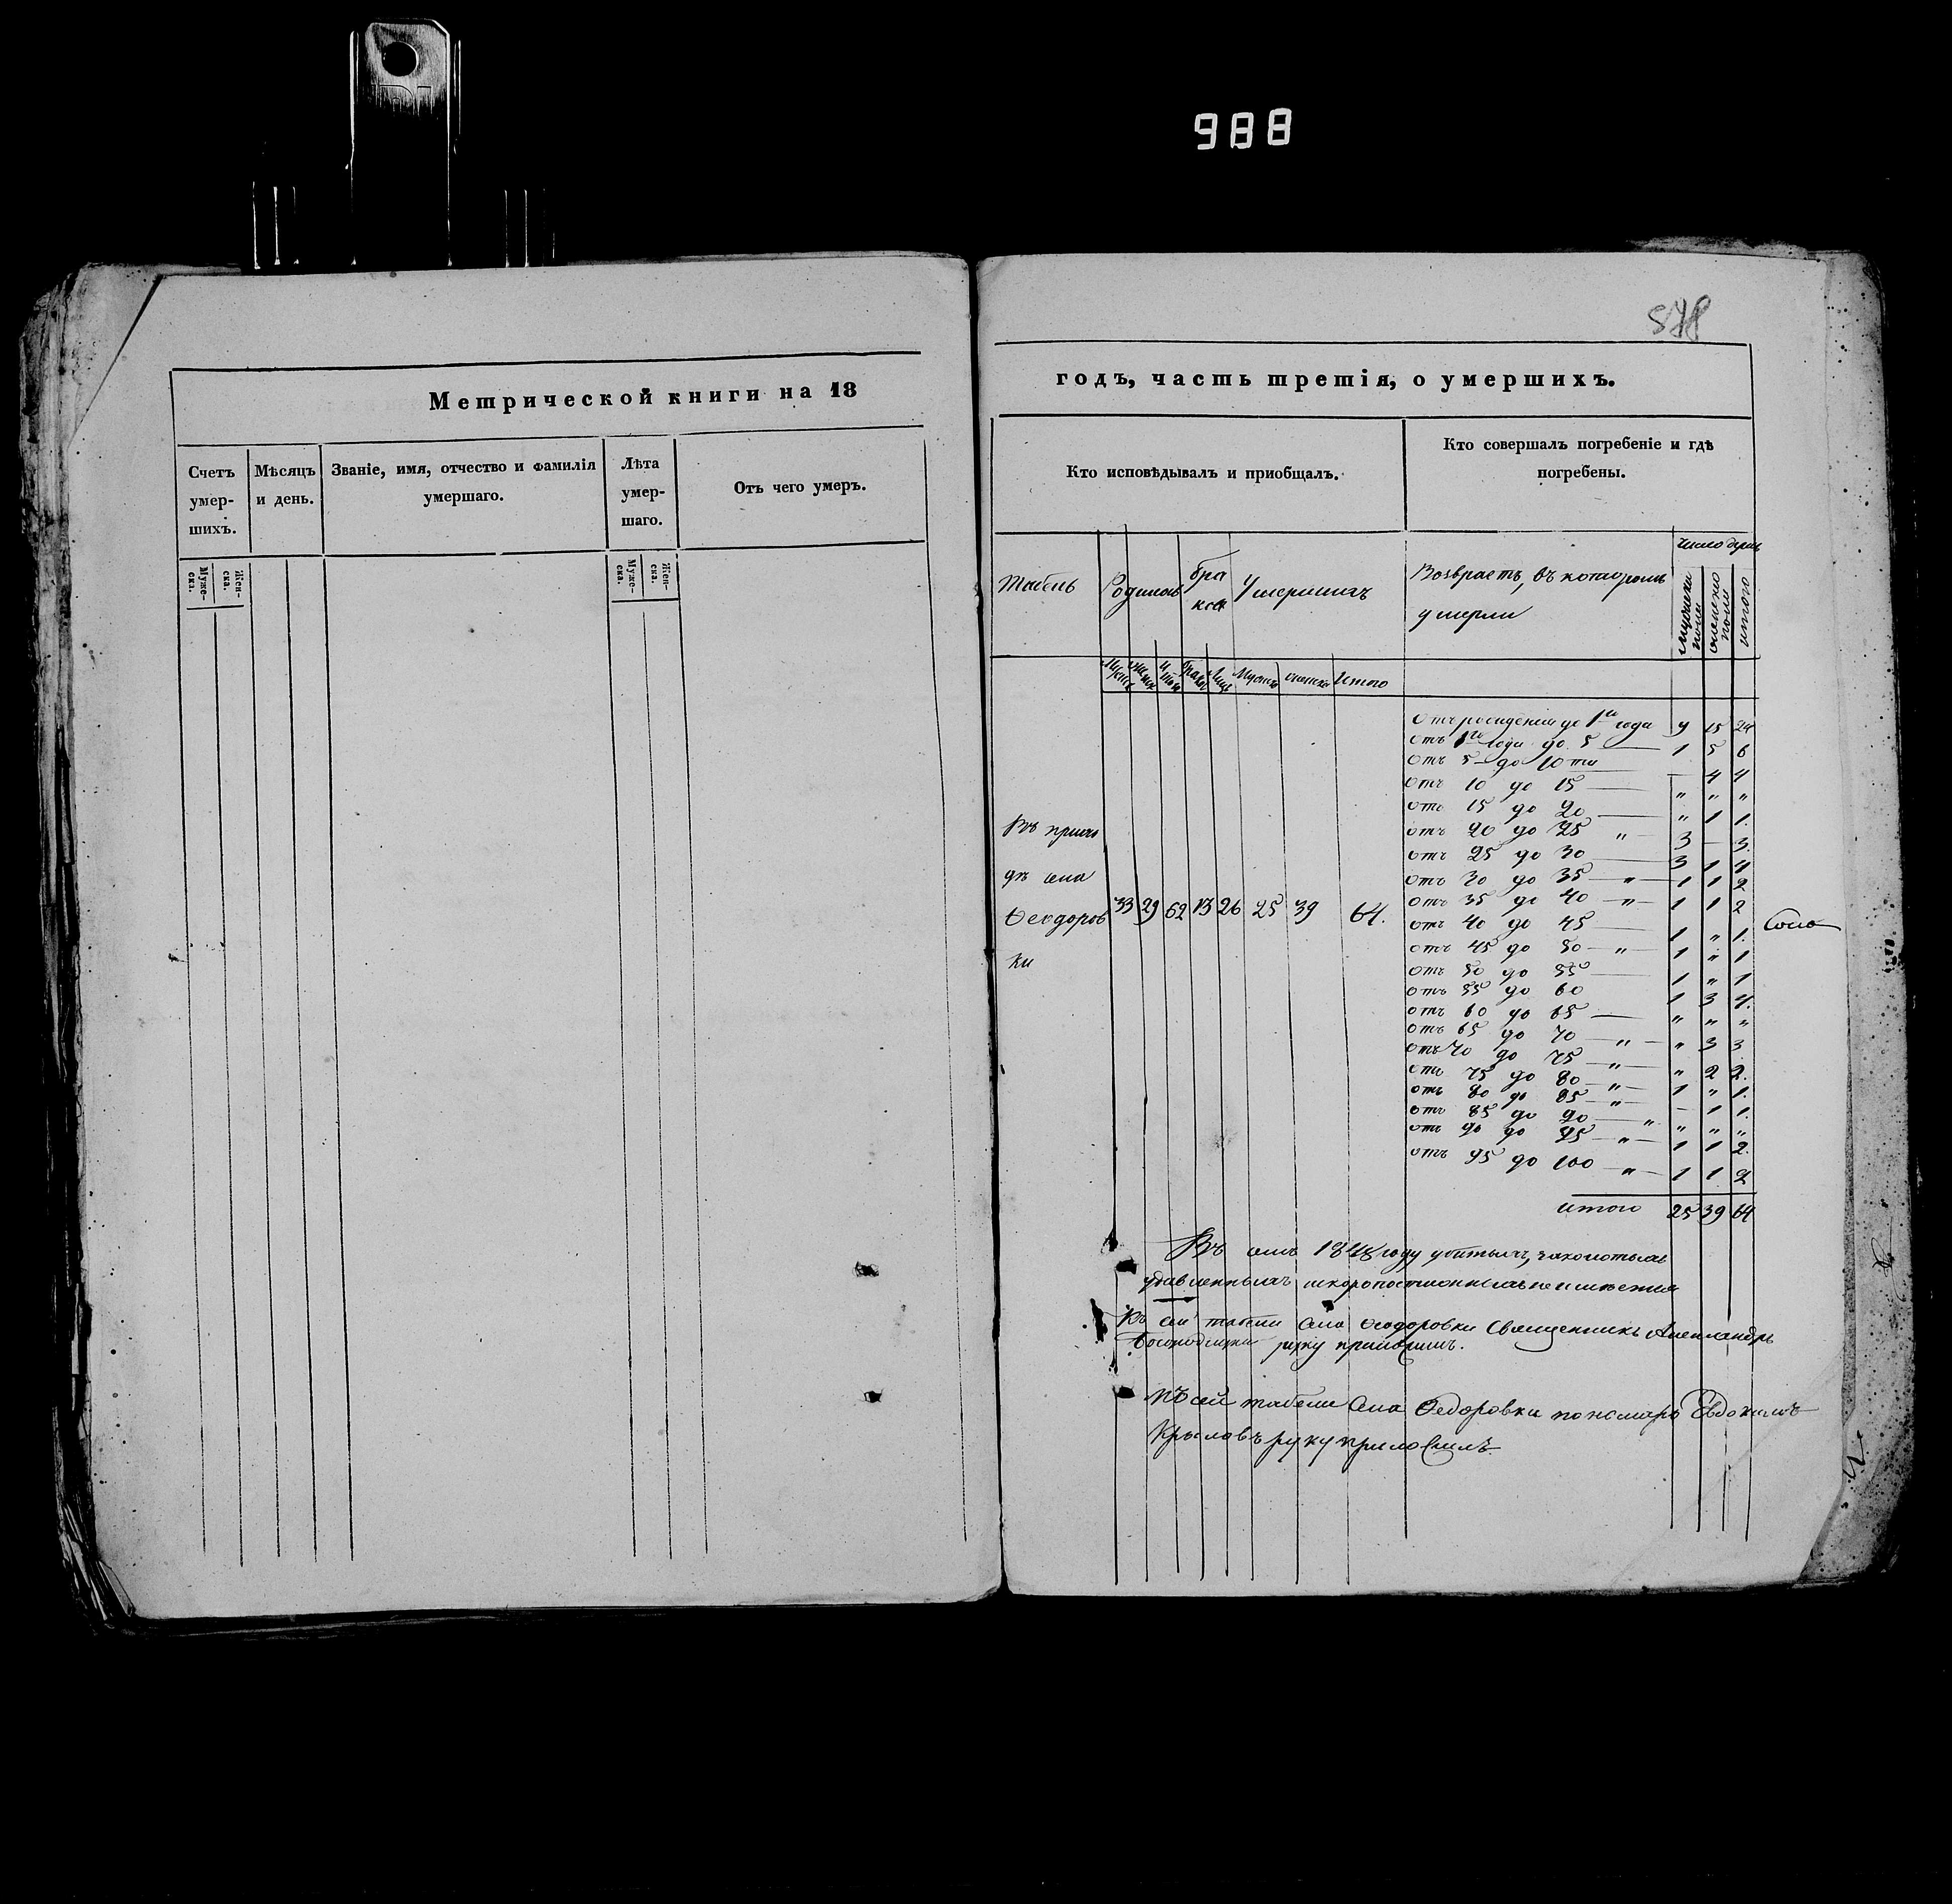 988
578
Метрической книги на 18
Счетъ умер- шихъ.
Мѣсяцъ и день.
Званіе, имя, отчество и фамилія умершаго.
Лѣта умер- шаго.
Отъ чего умеръ.
Муже- ска.
Жен- ска.
Муже- ска.
Жен- ска.
годъ, часть третія, о умершихъ.
Кто исповѣдывалъ и приобщалъ.
Кто совершалъ погребеніе и гдѣ погребены.
Табель
Родилось
бра ков
Умершихъ
Возврастъ, въ котаромъ умерли
число
мужска пола
женска пола
итого
Итого
Въ прихо
дѣ села
Ѳеодоров
ки
33 29 62 13 26 25 39 64.
Отъ рожденія до 1го года 9 15 24
Отъ 1го года до 5 1 5 6
Отъ 5 до 10ти — 4 4
Отъ 10 до 15 " " "
отъ 15 до 20 " 1 1.
отъ 20 до 25 " 3 — 3.
отъ 25 до 30 3 1 4
отъ 30 до 35 " 1 1 2
отъ 35 до 40 " 1 1 2
отъ 40 до 45 1 " 1.
отъ 45 до 50 " 1 " 1
отъ 50 до 55 1 " 1
отъ 55 до 60 1 3 4.
отъ 60 до 65 " " "
отъ 65 до 70 " " 3 3
отъ 70 до 75 " " 2 2.
отъ 75 до 80 " 1 " 1.
отъ 80 до 85 " — 1 1.
отъ 85 до 90 " " " "
отъ 90 до 95 " 1 1 2.
отъ 95 до 100 " 1 1 2
итого 25 39 64
Въ семъ 1848 году убитыхъ,
удавленныхъ
Къ сей табели села Ѳеодоровки Священникъ Александръ
руку приложилъ.
Къ сей табели села Ѳедоровки пономарь Евдокимъ
Крыловъ руку приложилъ